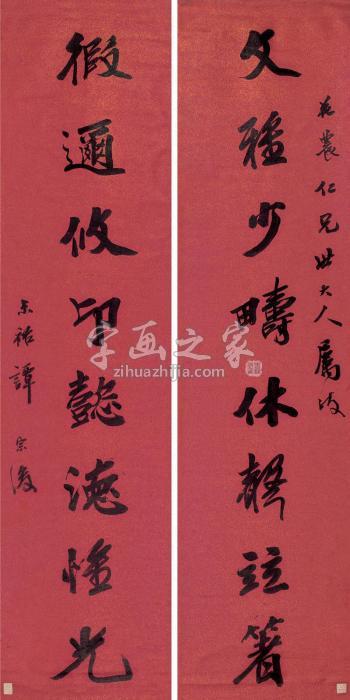 文雅少畴休聲竝著
苑農仁兄世大人屬政
徦邇攸卬懿德惟光
末祐譚宗浚
字画之家
zihuazhijia.com